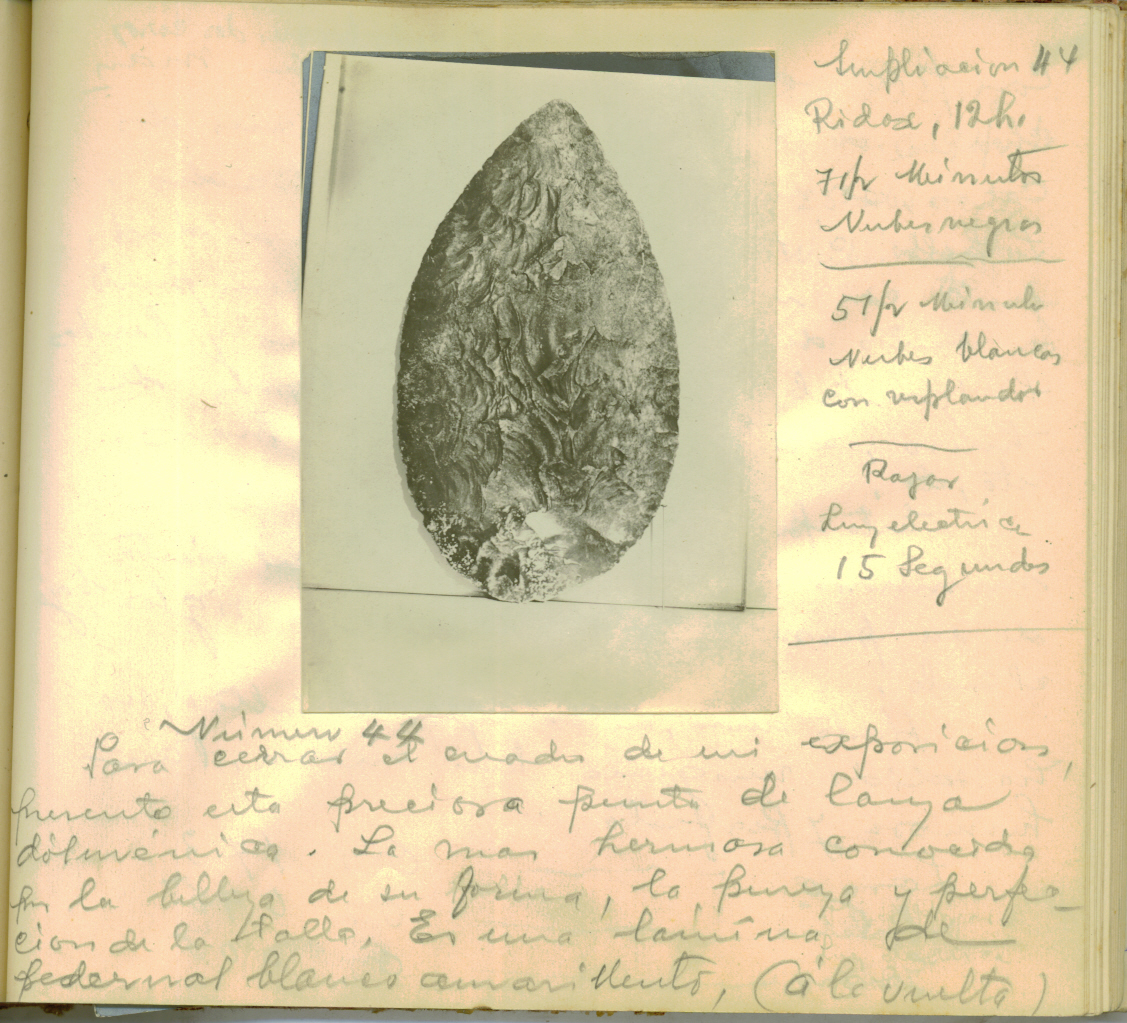 Ampliacion 44
Ridax, 12h.
7 1/2 Minutos
Nubes negras
5 1/2 Minutos
Nubes blancas
con resplandor
Rajar
Luz electrica
15 Segundos
Número 44
Para cerrar el cuadro de mi exposicion,
presento esta preciosa punta de lanza
dólménica. La mas hermosa conocida
por la belleza de su forma, la pureza y perfe-
cion de la talla. Es una lamína de
pedernal blanco amarillento, (á la vuelta)